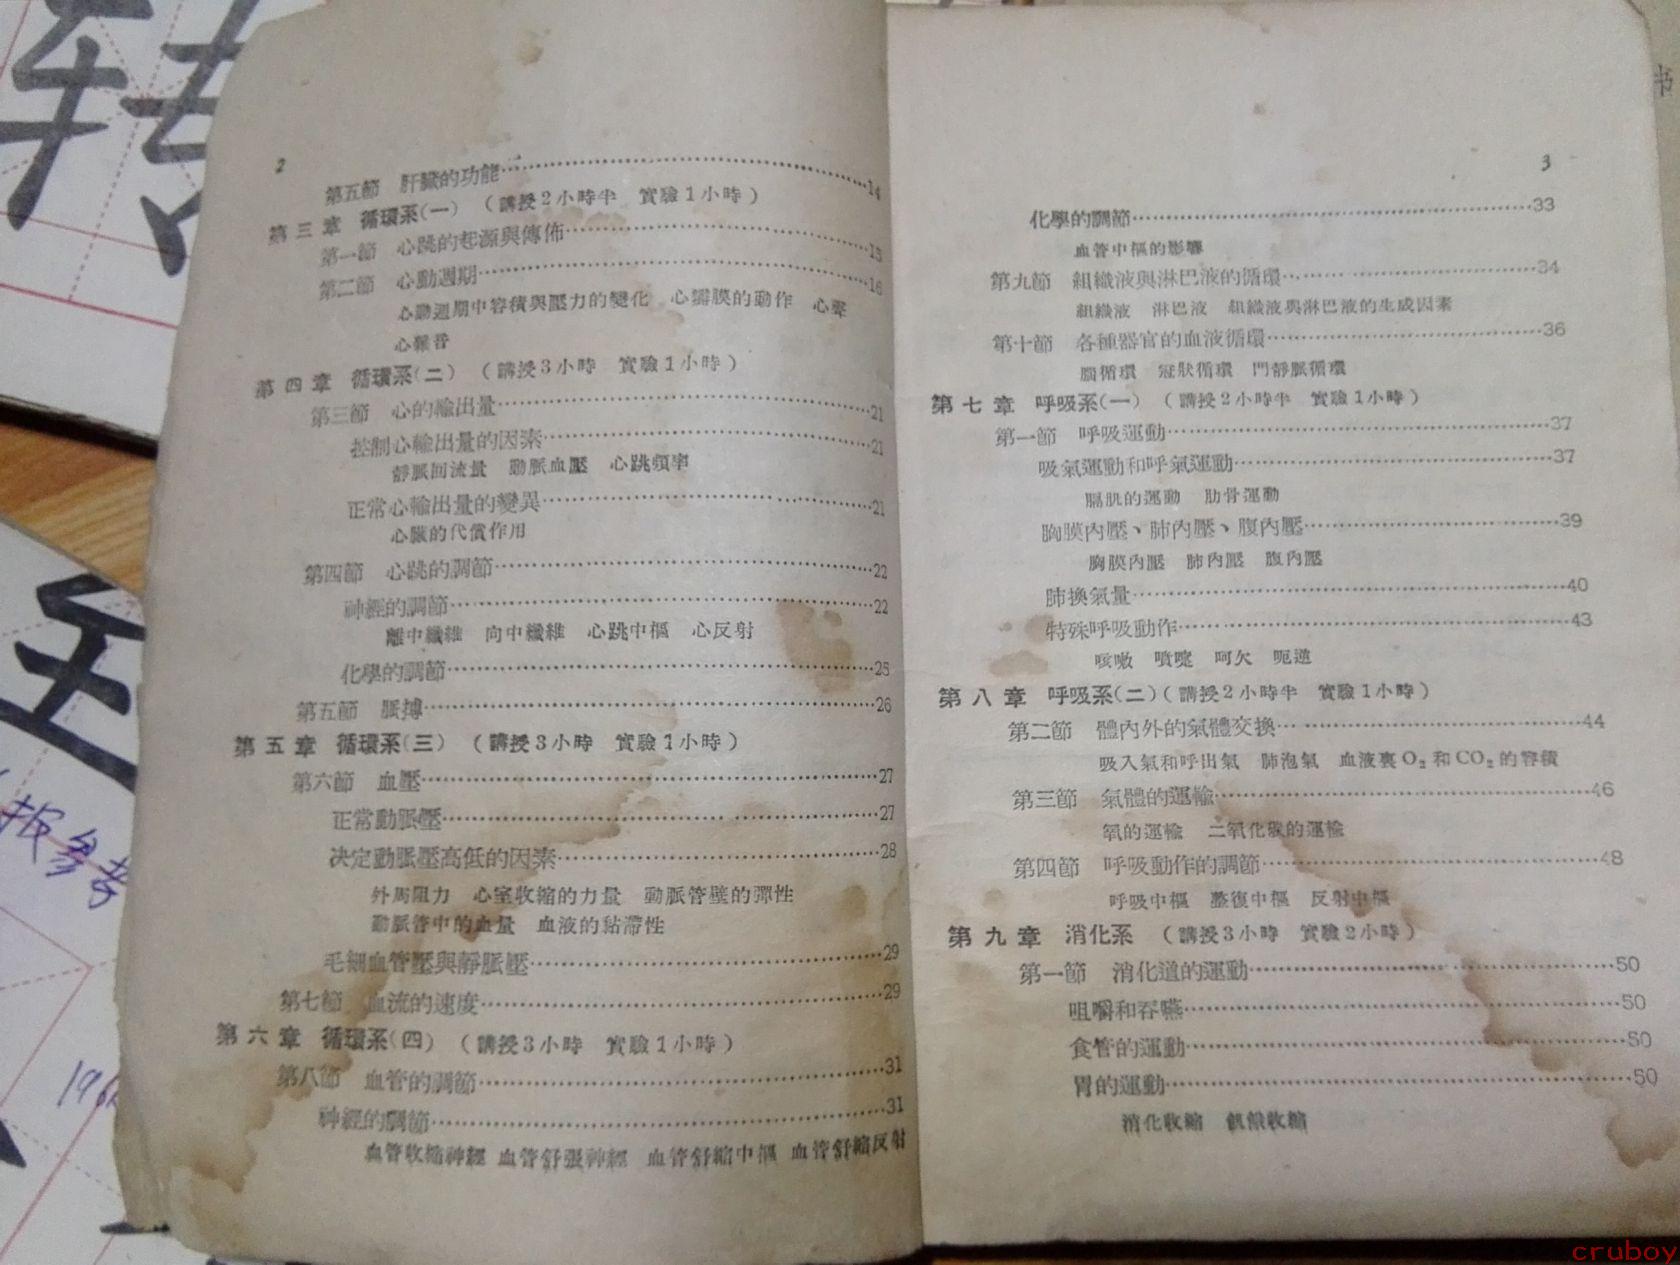 2
第五節 肝臟的功能…………14
第三章 循環系(一) (講授2小時半 實驗1小時)
第一節 心跳的起源與傳佈…………15
第二節 心動週期…………16
心動週期中容積與壓力的變化 心瓣膜的動作 心聲
心雜音
第四章 循環系(二) (講授3小時 實驗1小時)
第三節 心的輸出量…………21
控制心輸出量的因素…………21
靜脈回流量 動脈血壓 心跳頻率
正常心輸出量的變異…………21
心臟的代償作用
第四節 心跳的調節…………22
神經的調節…………22
離中纖維 向中纖維 心跳中樞 心反射
化學的調節…………25
第五節 脈搏…………26
第五章 循環系(三) (講授3小時 實驗1小時)
第六節 血壓…………27
正常動脈壓…………27
決定動脈壓高低的因素…………28
外周阻力 心室收縮的力量 動脈管壁的彈性
動脈管中的血量 血液的黏滯性
毛細血管壓與靜脈壓…………29
第七節 血流的速度…………29
第六章 循環系(四) (講授3小時 實驗1小時)
第八節 血管的調節…………31
神經的調節…………31
血管收縮神經 血管舒張神經 血管舒縮中樞 血管舒縮反射
3
化學的調節…………33
血管中樞的影響
第九節 組織液與淋巴液的循環…………34
組織液 淋巴液 組織液與淋巴液的生成因素
第十節 各種器官的血液循環…………36
腦循環 冠狀循環 門靜脈循環
第七章 呼吸系(一) (講授2小時半 實驗1小時)
第一節 呼吸運動…………37
吸氣運動和呼氣運動…………37
膈肌的運動 肋骨運動
胸膜內壓、肺內壓、腹內壓…………39
胸膜內壓 肺內壓 腹內壓
肺換氣量…………40
特殊呼吸動作…………43
咳嗽 噴嚏 呵欠 呃逆
第八章 呼吸系(二)(講授2小時半 實驗1小時)
第二節 體內外的氣體交換…………44
吸入氣和呼出氣 肺泡氣 血液裏O₂和CO₂的容積
第三節 氣體的運輸…………46
氧的運輸 二氧化碳的運輸
第四節 呼吸動作的調節…………48
呼吸中樞 整復中樞 反射中樞
第九章 消化系 (講授3小時 實驗2小時)
第一節 消化道的運動…………50
咀嚼和吞嚥…………50
食管的運動…………50
胃的運動…………50
消化收縮 飢餓收縮
转
书
板参考
cruboy